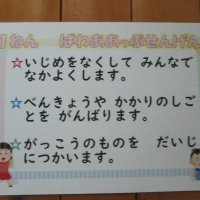 1ねん ぱわああっぷせんげん
☆いじめをなくして みんなで
なかよくします。
☆べんきょうや かかりのしご
とを がんばります。
☆がっこうのものを だいじ
につかいます。